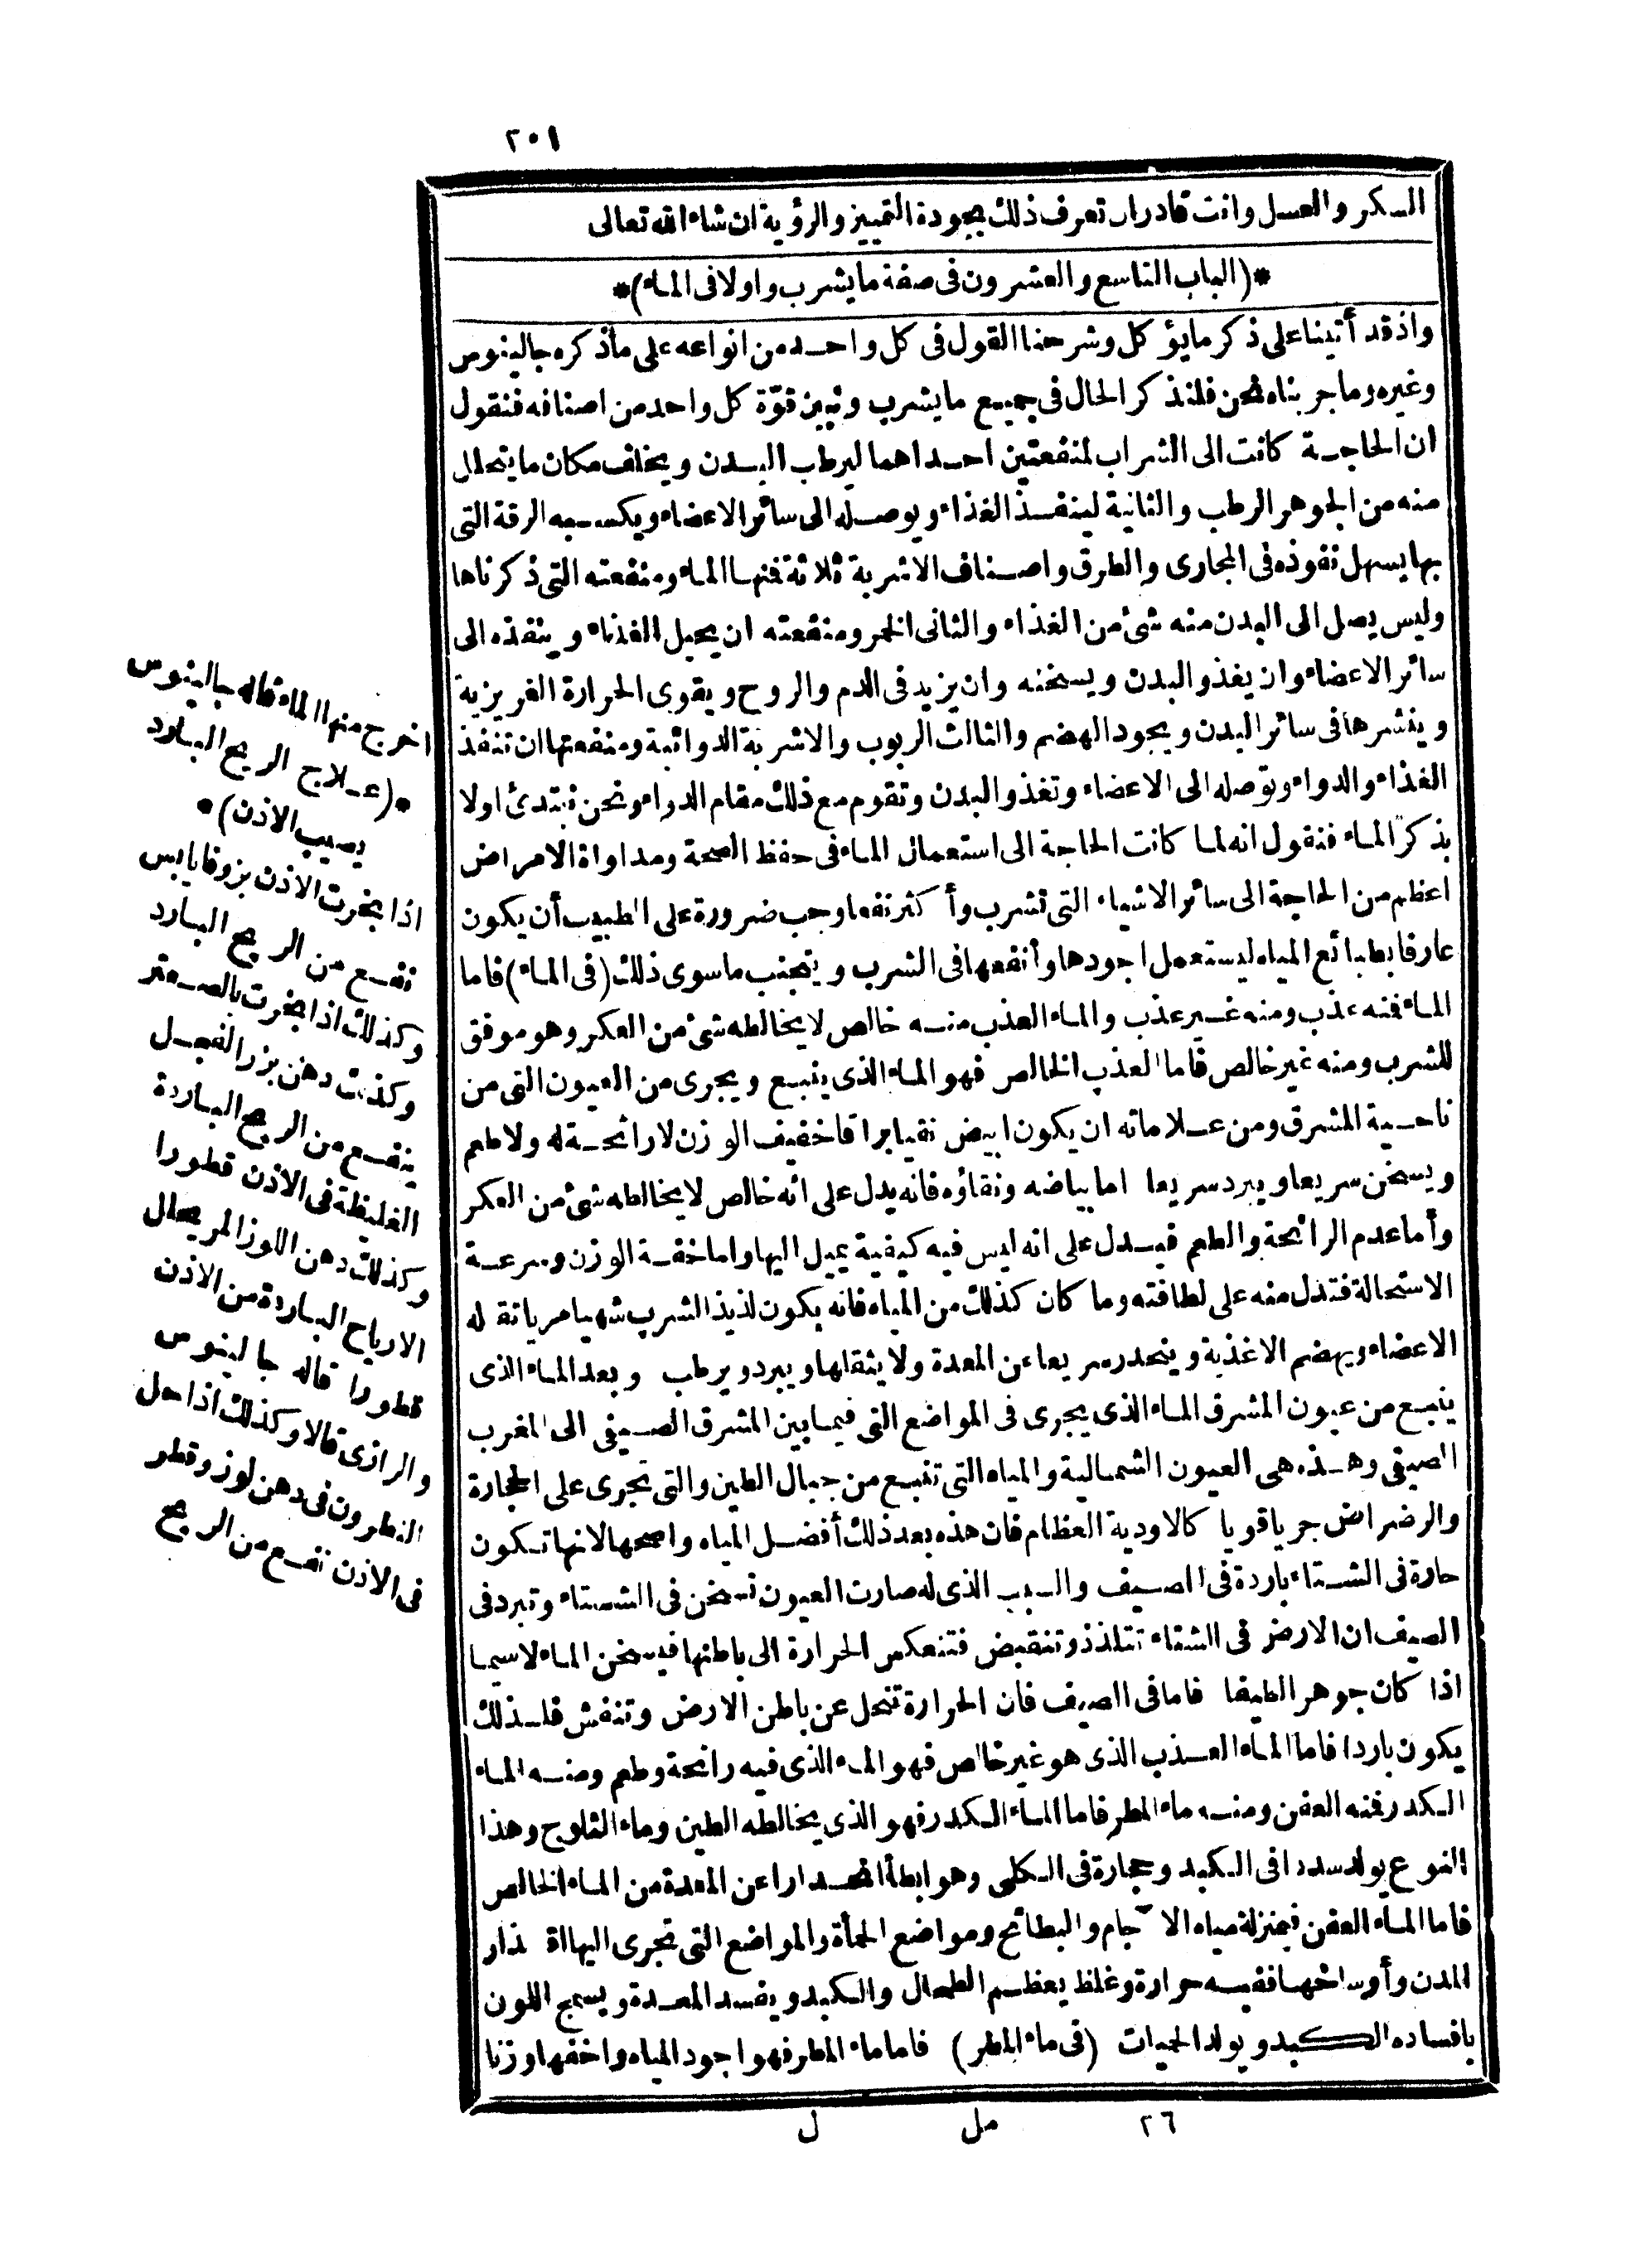 ٢٠١
السكر والعسل وانت قادر ان تعرف ذلك بجودة التمييز والرؤية ان شاء الله تعالى
*(الباب التاسع والعشرون فى صفة ما يشرب واولا فى الماء)*
واذ قد أتينا على ذكر ما يؤكل وشرحنا القول فى كل واحد من انواعه على ماذكره جالينوس
وغيره وما جربناه نحن فلنذكر الحال فى جميع ما يشرب ونبين قوّة كل واحد من اصنافه فنقول
ان الحاجة كانت الى الشراب لمنفعتين احداهما ليرطب البدن ويخلف مكان ما يتحلل
منه من الجوهر الرطب والثانية لينفذ الغذاء ويوصله الى سائر الاعضاء ويكسبه الرقة التى
بها يسهل نفوذه فى المجارى والطرق واصناف الاشربة ثلاثة فمنها الماء ومنفعته التى ذكرناها
وليس يصل الى البدن منه شئ من الغذاء والثانى الخمر ومنفعته ان يحيل الغذاء وينفذه الى
سائر الاعضاء وان يغذو البدن ويسخنه وان يزيد فى الدم والروح ويقوى الحرارة الغريزية
وينشرها فى سائر البدن ويجود الهضم والثالث الربوب والاشربة الدوائية ومنفعتها ان تنفذ
الغذاء والدواء وتوصله الى الاعضاء وتغذو البدن وتقوم مع ذلك مقام الدواء ونحن نبتدئ اولا
بذكر الماء فنقول انه لما كانت الحاجة الى استعمال الماء فى حفظ الصحة ومداواة الامراض
اعظم من الحاجة الى سائر الاشياء التى تشرب وأكثر نفعا وجب ضرورة على الطبيب أن يكون
عارفا بطبائع المياه ليستعمل اجودها وأنفعها فى الشرب ويتجنب ما سوى ذلك (فى الماء) فاما
الماء فمنه عذب ومنه غير عذب والماء العذب منه خالص لا يخالطه شئ من العكر وهو موفق
للشرب ومنه غير خالص فاما العذب الخالص فهو الماء الذى ينبع ويجرى من العيون التى من
ناحية المشرق ومن علاماته ان يكون ابيض نقيا براقا خفيف الوزن لا رائحة له ولا طعم
ويسخن سريعا ويبرد سريعا اما بياضه ونقاؤه فانه يدل على انه خالص لا يخالطه شئ من العكر
وأما عدم الرائحة والطعم فيدل على انه ليس فيه كيفية يميل اليها واما خفة الوزن وسرعة
الاستحالة فتدل منه على لطافته وما كان كذلك من المياه فانه يكون لذيذ الشرب شهيا مريا تقبله
الاعضاء ويهضم الاغذية وينحدر سريعا عن المعدة ولا يثقلها ويبرد ويرطب وبعد الماء الذى
ينبع من عيون المشرق الماء الذى يجرى فى المواضع التى فيما بين المشرق الصيفى الى المغرب
الصيفى وهذه هى العيون الشمالية والمياه التى تنبع من جبال الطين والتى تجرى على الحجارة
والرضراض جريا قويا كالاودية العظام فان هذه بعد ذلك أفضل المياه واصحها لانها تكون
حارة فى الشتاء باردة فى الصيف والسبب الذى له صارت العيون تسخن فى الشتاء وتبرد فى
الصيف ان الارض فى الشتاء تتلذذ وتنقبض فتنعكس الحرارة الى باطنها فيسخن الماء لاسيما
اذا كان جوهر الطيفا فاما فى الصيف فان الحرارة تنحل عن باطن الارض وتنفش فلذلك
يكون باردا فاما الماء العذب الذى هو غير خالص فهو الماء الذى فيه رائحة وطعم ومنه الماء
الكدر فمنه العفن ومنه ماء المطر فاما الماء الكدر فهو الذى يخالطه الطين وماء الثلوج وهذا
النوع يولد سددا فى الكبد وحجارة فى الكلى وهو ابطأ انحدارا عن المعدة من الماء الخالص
فاما الماء العفن فبمنزلة مياه الآجام والبطائح ومواضع الحمأة والمواضع التى تجرى اليها اقذار
المدن وأوساخها ففيه حرارة وغلظ يعظم الطحال والكبد ويفسد المعدة ويسمج اللون
بافساده الكبد ويولد الحميات (فى ماء المطر) فاما ماء المطر فهو اجود المياه واخفها وزنا
٢٦ مل ل
اخرج منها الماء قاله جالينوس
*(علاج الريح البارد
يصيب الاذن)*
اذا بخرت الاذن بزوفا يابس
نفع من الريح البارد
وكذلك اذا بخرت بالصعتر
وكذلك دهن بزر الفجل
ينفع من الريح الباردة
الغليظة فى الاذن قطورا
وكذلك دهن اللوز المر يحلل
الارياح الباردة من الاذن
قطورا قاله جالينوس
والرازى قالا وكذلك اذا حل
النطرون فى دهن لوز وقطر
فى الاذن نفع من الريح